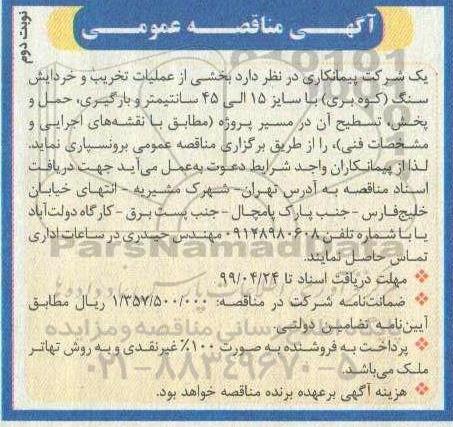 آگهی مناقصه عمومی
نوبت دوم
یک شرکت پیمانکاری در نظر دارد بخشی از عملیات تخریب و خردایش
سنگ (کوه بری) با سایز ۱۵ الی ۴۵ سانتیمتر و بارگیری، حمل و
پخش، تسطیح آن در مسیر پروژه (مطابق با نقشه‌های اجرایی و
مشخصات فنی)، را از طریق برگزاری مناقصه عمومی برونسپاری نماید.
لذا از پیمانکاران واجد شرایط دعوت به‌عمل می‌آید جهت دریافت
اسناد مناقصه به آدرس تهران– شهرک مشیریه – انتهای خیابان
خلیج‌فارس – جنب پارک پامچال – جنب پست برق – کارگاه دولت‌آباد
یا با شماره تلفن ۰۹۱۴۸۹۸۰۶۰۸ مهندس حیدری در ساعات اداری
تماس حاصل نمایند.
❖ مهلت دریافت اسناد تا ۹۹/۰۴/۲۴
❖ ضمانت‌نامه شرکت در مناقصه: ۱/۳۵۷/۵۰۰/۰۰۰ ریال مطابق
آیین‌نامه تضامین دولتی.
❖ پرداخت به فروشنده به صورت ۱۰۰٪ غیرنقدی و به روش تهاتر
ملک می‌باشد.
❖ هزینه آگهی برعهده برنده مناقصه خواهد بود.
ParsNamadData
۰۲۱-۸۸۳۴۹۶۷۰-۵